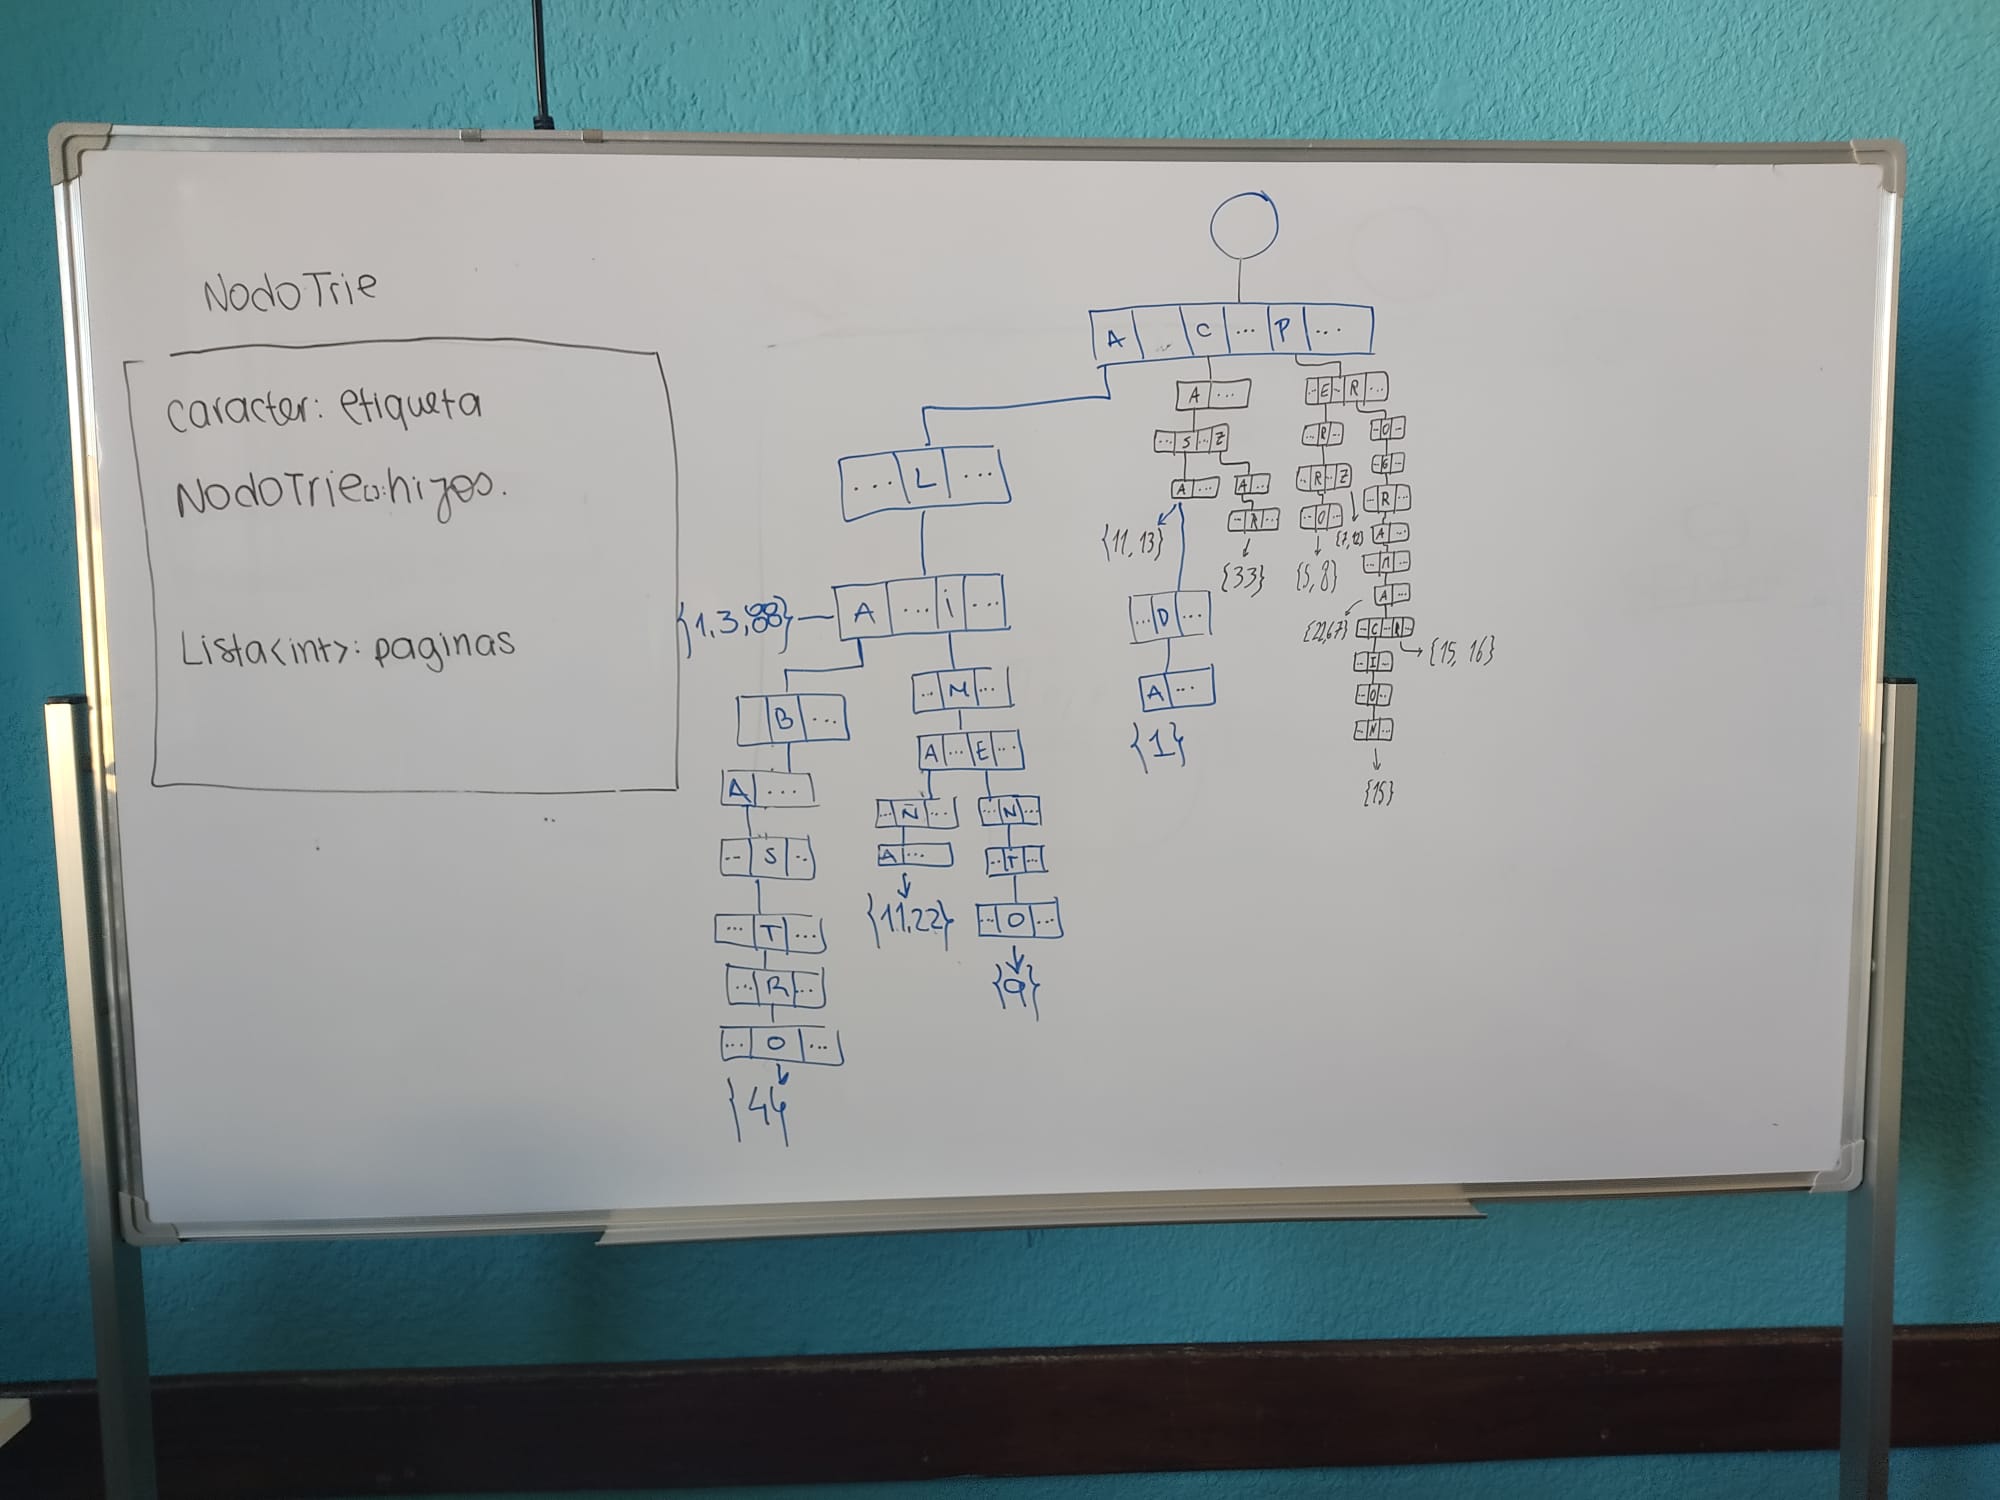 NodoTrie
caracter: etiqueta
NodoTrie[]: hijos.
Lista<int>: paginas
A ... C ... P ...
... L ...
A ... i ...
{1, 3, 88}
B ...
A ...
-- S ..
... T ...
... R ...
... O ...
{44
.. M ...
A ... E ...
... Ñ ...
A ...
{11,22}
... N ...
.. T ...
... O ...
{9}
A ...
... S ... Z
A ...
{11, 13}
... D ...
A ...
{1}
A ..
- R ...
{33}
- E - R ...
... R -
.. R - Z
- O -
{5, 8}
- O -
- G -
- R ...
A ...
A ...
{22,67}
- C - R -
{15, 16}
- I -
- O -
- N ..
{15}